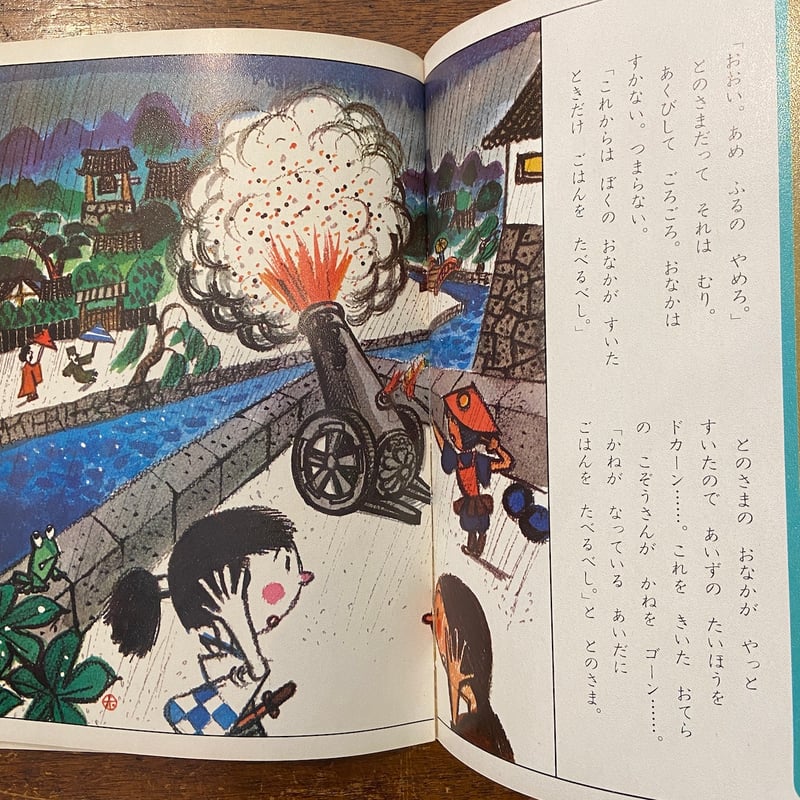 「おおい。あめ　ふるの　やめろ。」
とのさまだって　それは　むり。
あくびして　ごろごろ。おなかは
すかない。つまらない。
「これからは　ぼくの　おなかが　すいた
ときだけ　ごはんを　たべるべし。」
とのさまの　おなかが　やっと
すいたので　あいずの　たいほうを
ドカーン……。これを　きいた　おてら
の　こぞうさんが　かねを　ゴーン……。
「かねが　なっている　あいだに
ごはんを　たべるべし。」と　とのさま。